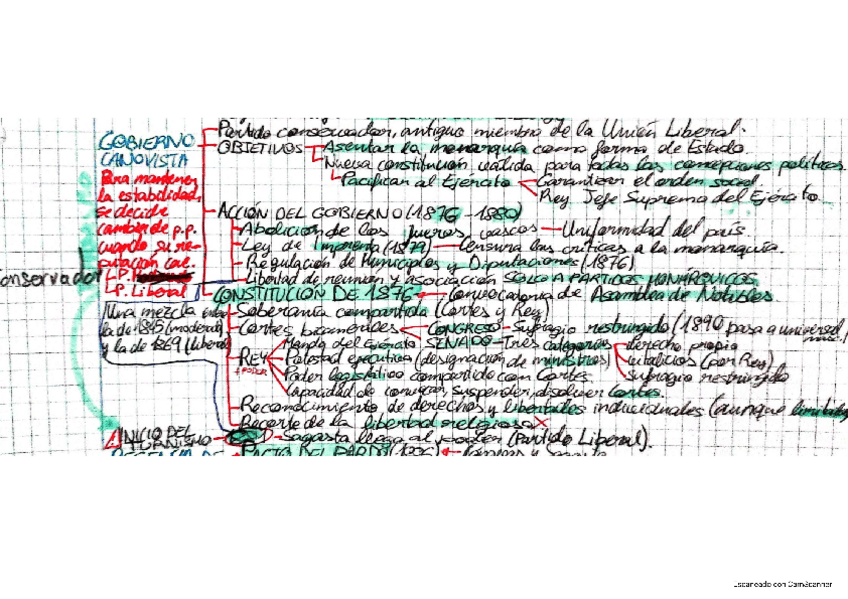 Partido conservador, antiguo miembro de la Unión Liberal.
GOBIERNO CANOVISTA
OBJETIVOS - Asentar la monarquía como forma de Estado.
Nueva constitución válida para todas las concepciones políticas.
Pacifican al Ejército - Garanticen el orden social
Rey Jefe Supremo del Ejército.
Para mantener
la estabilidad,
se decide
cambiar de p.p.
cuando su re-
putación cae.
P.
Conservador
P. Liberal
ACCIÓN DEL GOBIERNO (1876-1880)
Abolición de los fueros vascos - Uniformidad del país.
Ley de Imprenta (1879) - Censura las críticas a la monarquía.
Regulación de Municipios y Diputaciones (1876)
Libertad de reunión y asociación SÓLO A PARTIDOS MONÁRQUICOS
CONSTITUCIÓN DE 1876 - Convocatoria de Asamblea de Notables.
Una mezcla entre
la de 1845 (moderada)
y la de 1869 (liberal)
Soberanía compartida (Cortes y Rey)
Cortes bicamerales - CONGRESO - Sufragio restringido (1890 pasa a universal
SENADO - Tres categorías - derecho propio
vitalicios (por Rey)
sufragio restringido
REY
+PODER
Mando del Ejército
Potestad ejecutiva (designación de ministros)
Poder legislativo compartido con Cortes
Capacidad de convocar, suspender, disolver Cortes.
Reconocimiento de derechos y libertades individuales (aunque limitados
Recorte de la libertad religiosa X
INICIO DEL TURNISMO - Sagasta llega al poder (Partido Liberal).
REGENCIA DE
PACTO DEL PARDO
Escaneado con CamScanner